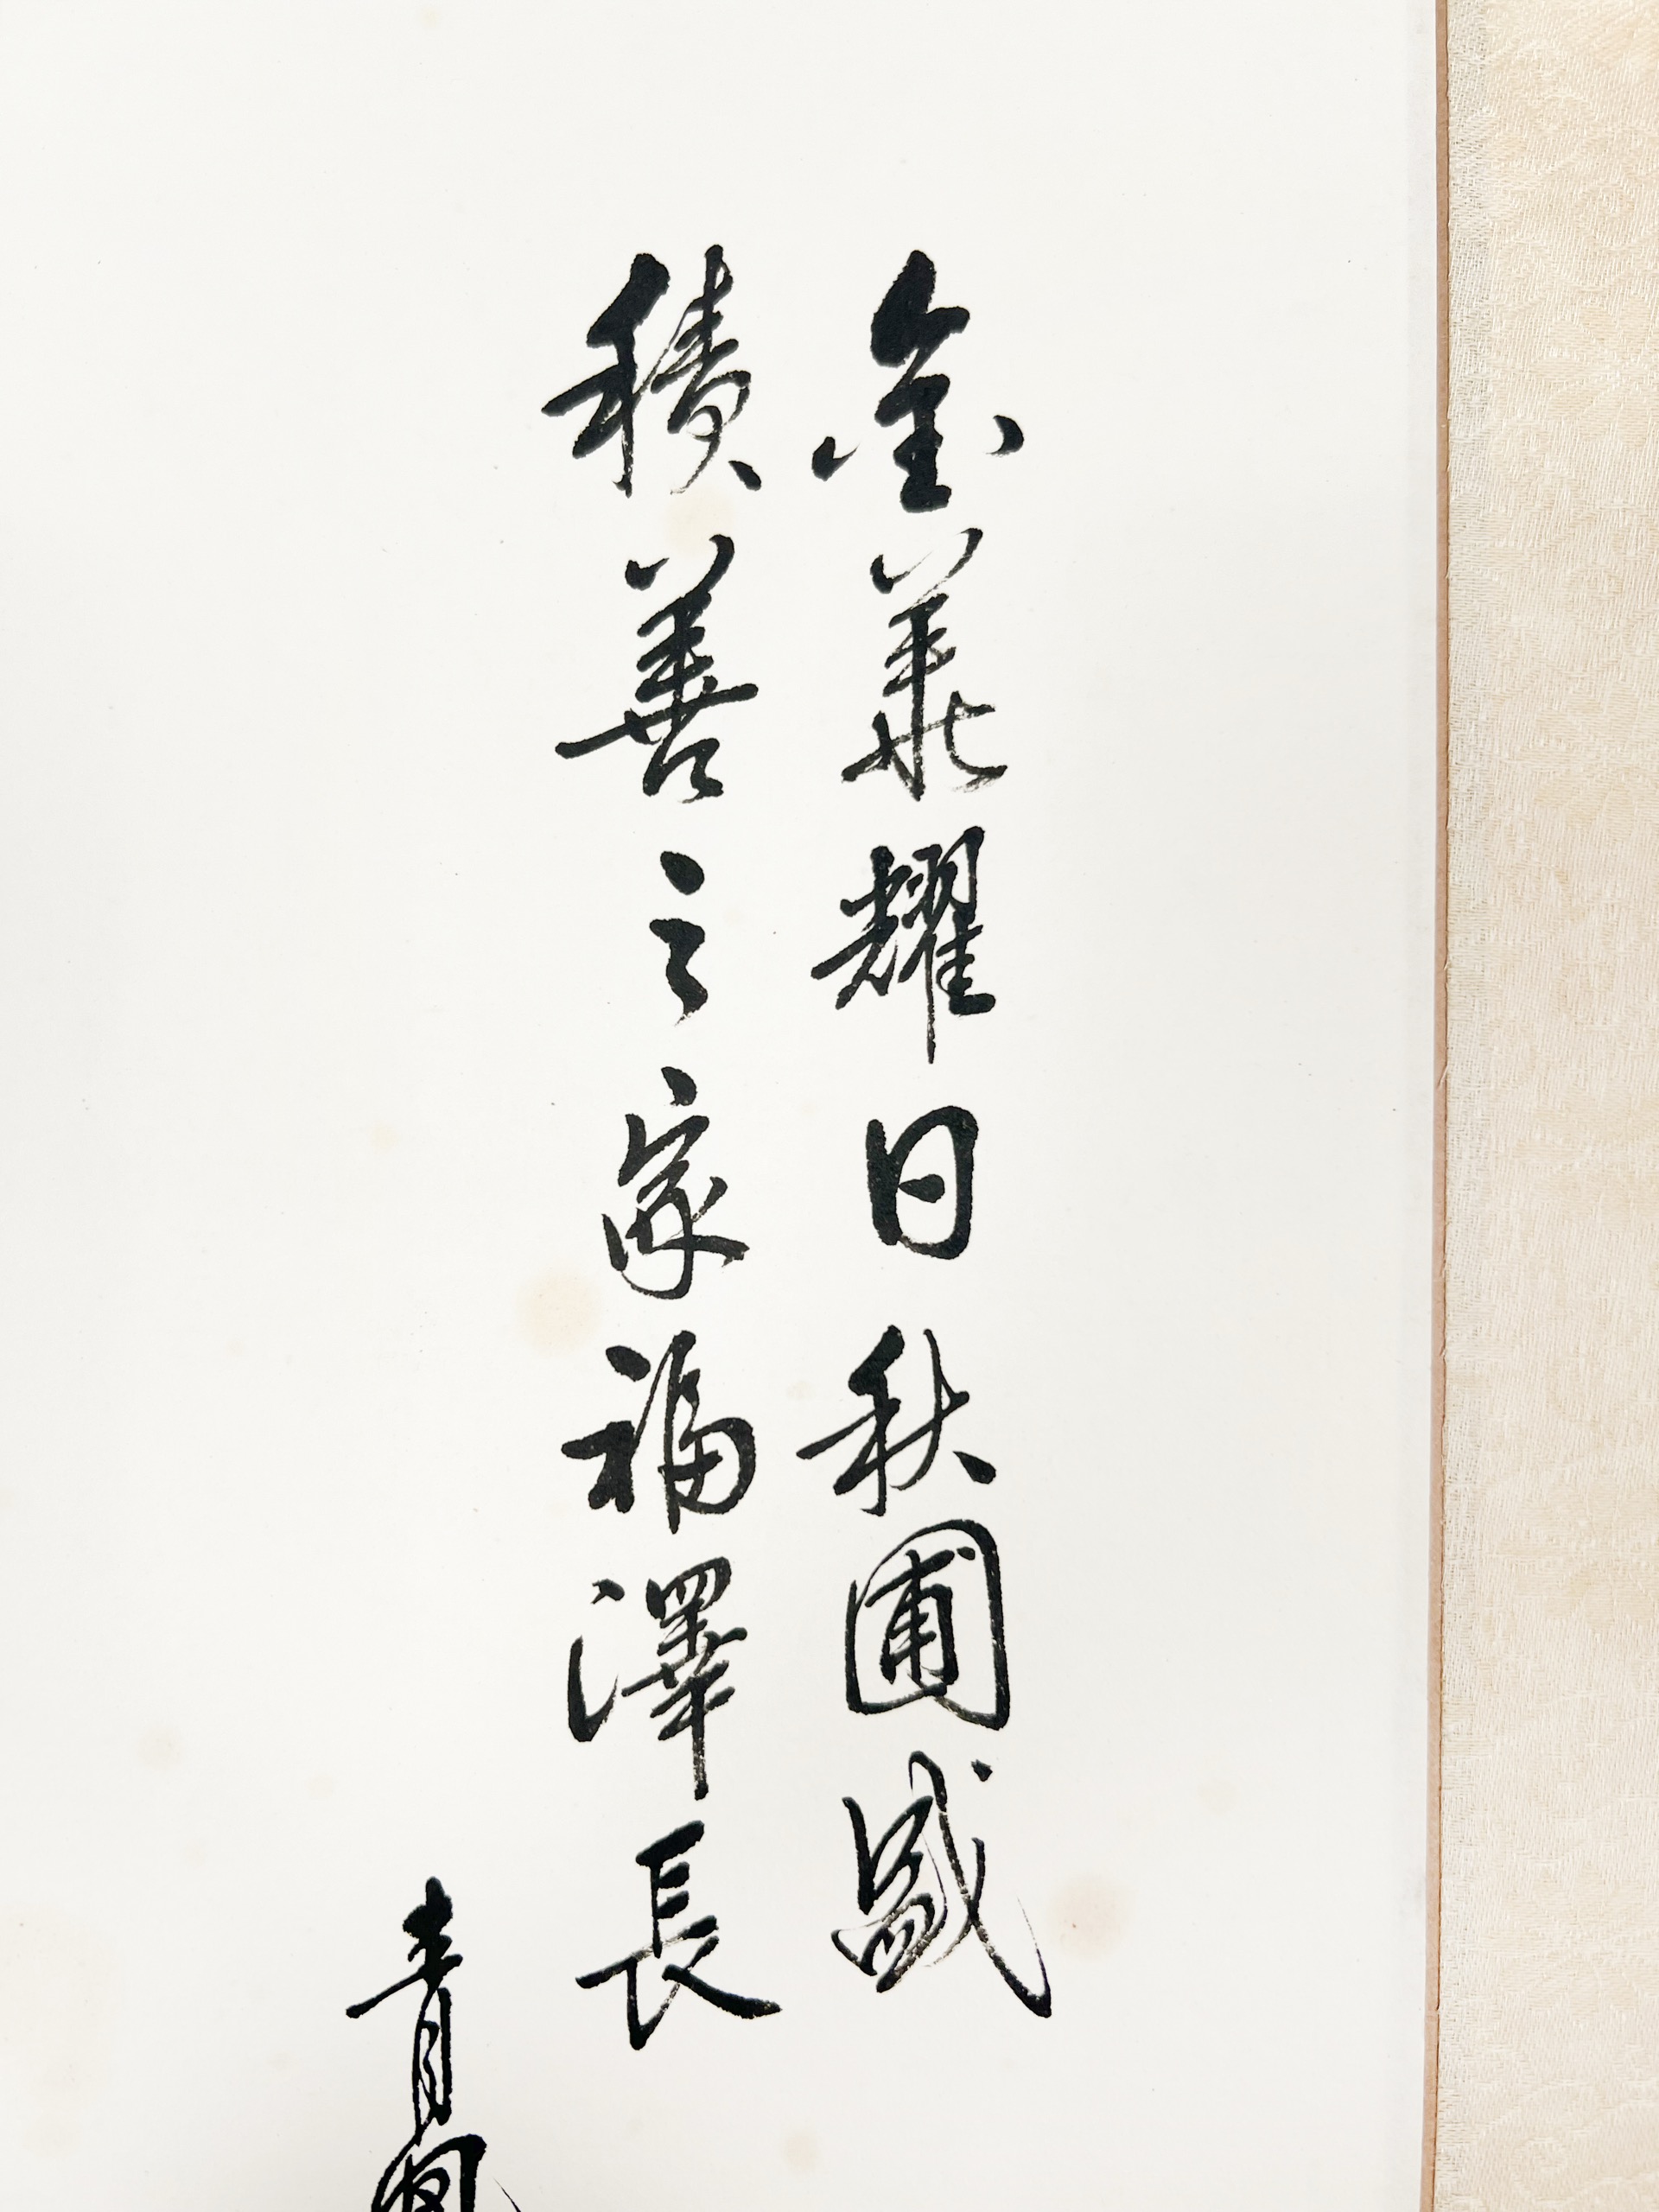 金英耀日秋圃盛
積善之家福澤長
青